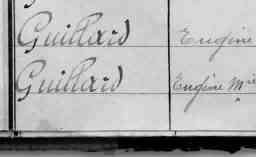 Guillard Eugène
Guillard Eugène Mie